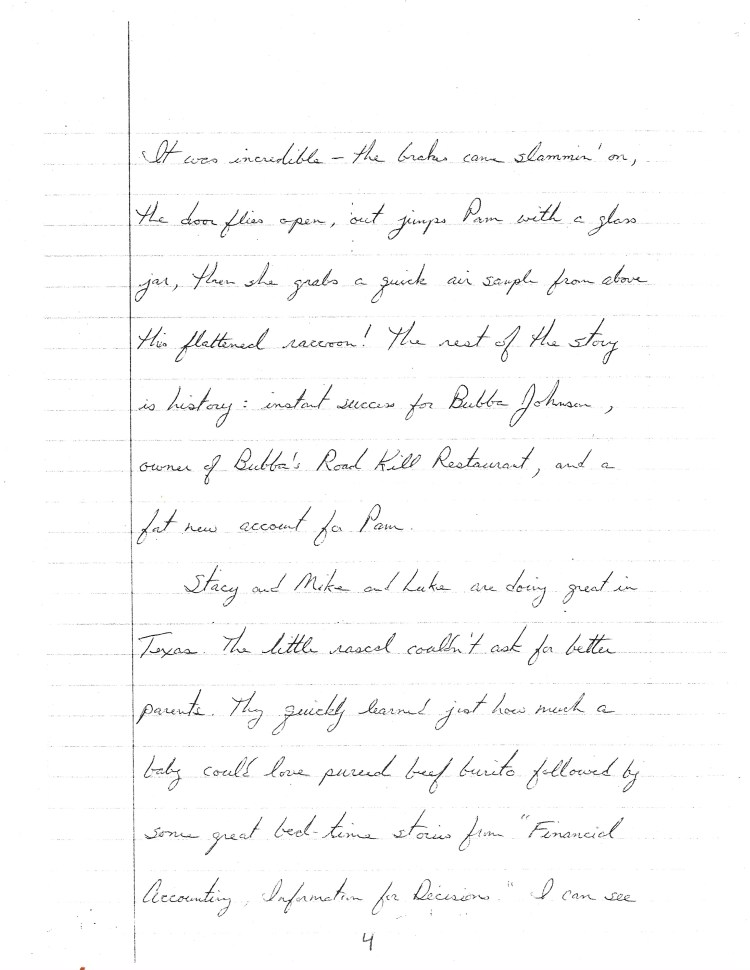 It was incredible – the brakes came slammin' on,
the door flies open, out jumps Pam with a glass
jar, then she grabs a quick air sample from above
this flattened raccoon! The rest of the story
is history: instant success for Bubba Johnson,
owner of Bubba's Road Kill Restaurant, and a
fat new account for Pam.
Stacy and Mike and Luke are doing great in
Texas. The little rascal couldn't ask for better
parents. They quickly learned just how much a
baby could love pureed beef burito followed by
some great bed-time stories from "Financial
Accounting, Information for Decisions." I can see
4